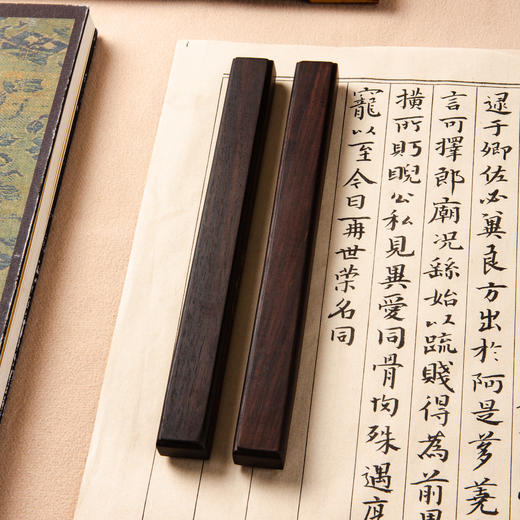 逮于卿佐必冀良方出於阿是芻蕘
言可擇郎廟況繇始以疏賤得為前恩
橫所盱睨公私見異愛同骨肉殊遇厚
寵以至今日再世榮名同